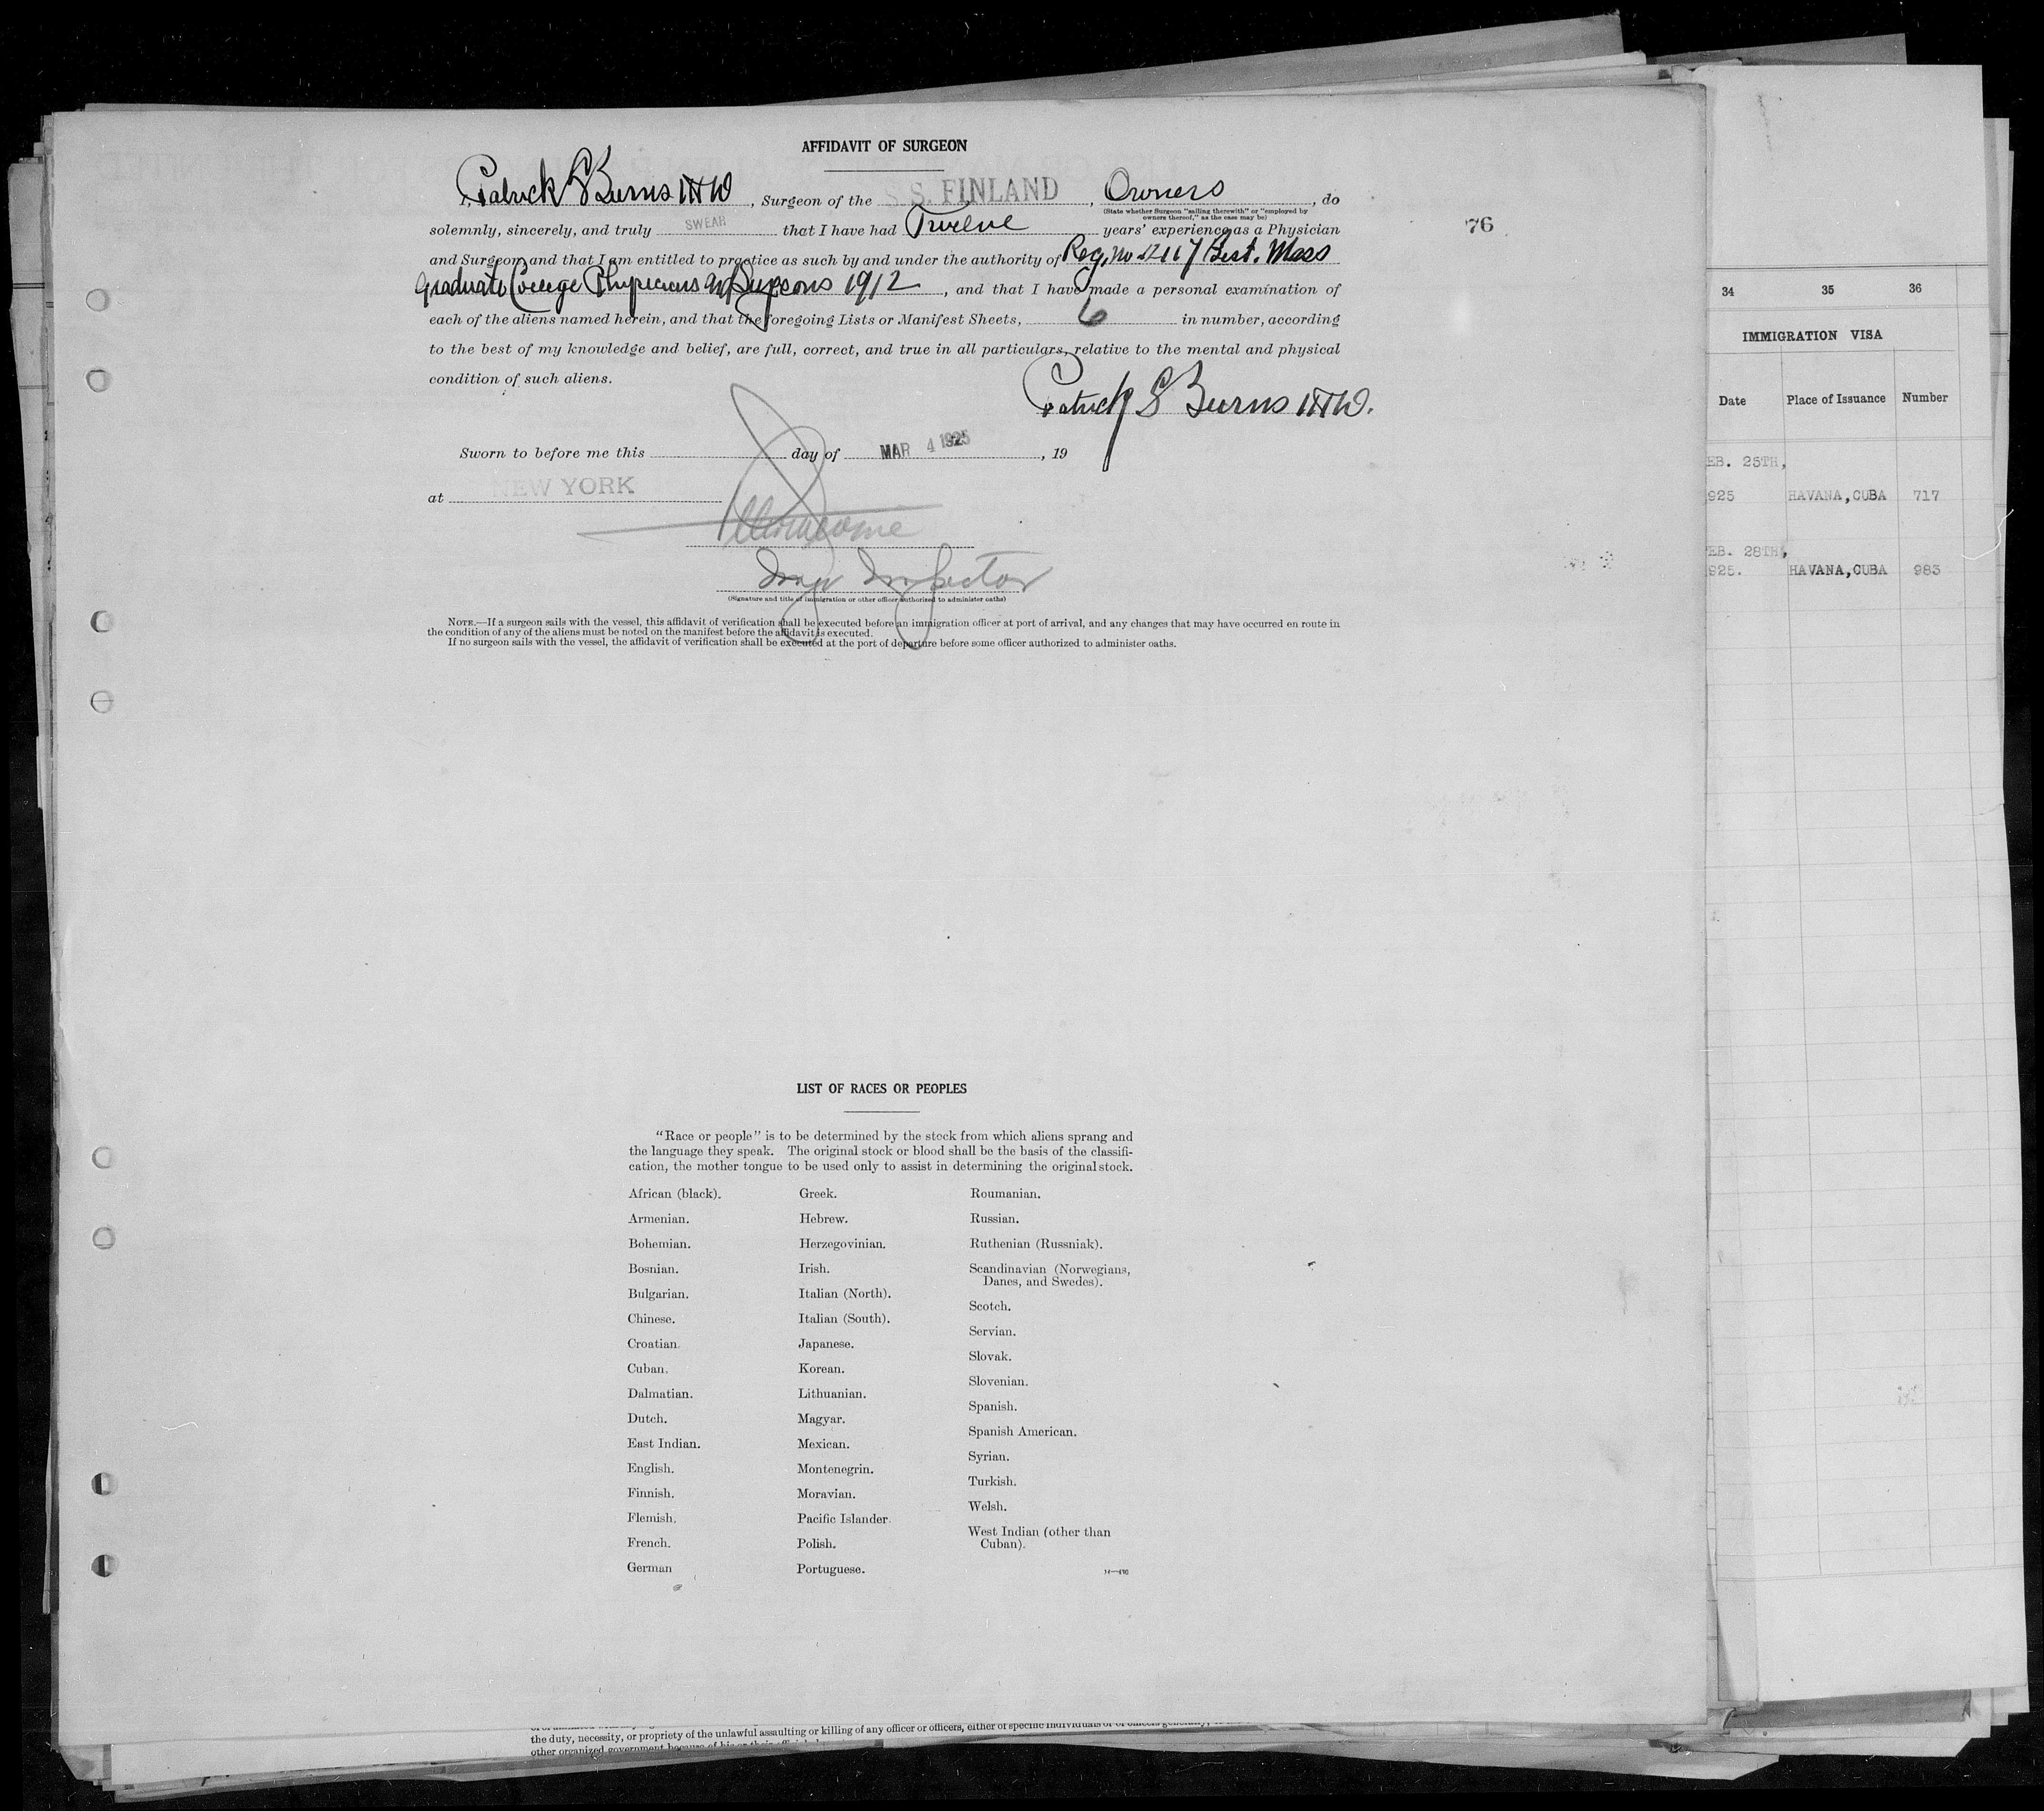 AFFIDAVIT OF SURGEON
I, Patrick S Burns MD, Surgeon of the S. S. FINLAND, Owners, do
(State whether Surgeon "sailing therewith" or "employed by
owners thereof," as the case may be)
solemnly, sincerely, and truly SWEAR that I have had Twelve years' experience as a Physician
76
and Surgeon, and that I am entitled to practice as such by and under the authority of Reg. no Mass
Graduate College Physicians and Surgeons 1912, and that I have made a personal examination of
each of the aliens named herein, and that the foregoing Lists or Manifest Sheets, 6 in number, according
to the best of my knowledge and belief, are full, correct, and true in all particulars, relative to the mental and physical
condition of such aliens.
Patrick S Burns MD.
Sworn to before me this day of MAR 4 1925, 19
at NEW YORK
Inspector
(Signature and title of immigration or other officer authorized to administer oaths)
NOTE.—If a surgeon sails with the vessel, this affidavit of verification shall be executed before an immigration officer at port of arrival, and any changes that may have occurred en route in
the condition of any of the aliens must be noted on the manifest before the affidavit is executed.
If no surgeon sails with the vessel, the affidavit of verification shall be executed at the port of departure before some officer authorized to administer oaths.
LIST OF RACES OR PEOPLES
"Race or people" is to be determined by the stock from which aliens sprang and
the language they speak. The original stock or blood shall be the basis of the classifi-
cation, the mother tongue to be used only to assist in determining the original stock.
African (black).
Armenian.
Bohemian.
Bosnian.
Bulgarian.
Chinese.
Croatian.
Cuban.
Dalmatian.
Dutch.
East Indian.
English.
Finnish.
Flemish.
French.
German
Greek.
Hebrew.
Herzegovinian.
Irish.
Italian (North).
Italian (South).
Japanese.
Korean.
Lithuanian.
Magyar.
Mexican.
Montenegrin.
Moravian.
Pacific Islander.
Polish.
Portuguese.
Roumanian.
Russian.
Ruthenian (Russniak).
Scandinavian (Norwegians,
Danes, and Swedes).
Scotch.
Servian.
Slovak.
Slovenian.
Spanish.
Spanish American.
Syrian.
Turkish.
Welsh.
West Indian (other than
Cuban).
34 35 36
IMMIGRATION VISA
Date Place of Issuance Number
EB. 25TH,
925 HAVANA, CUBA 717
EB. 28TH,
925. HAVANA, CUBA 983
the duty, necessity, or propriety of the unlawful assaulting or killing of any officer or officers, either of specific individuals or of officers generally,
other organized government because of his or their